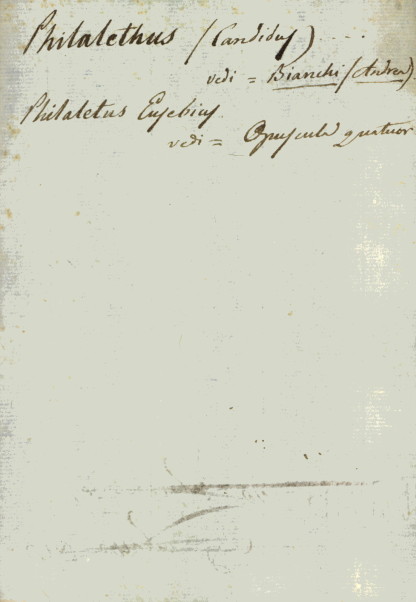 Philalethus (Candidus) ....
vedi = Bianchi (Andrea)
Philaletus Eusebius
vedi = Opuscula quatuor